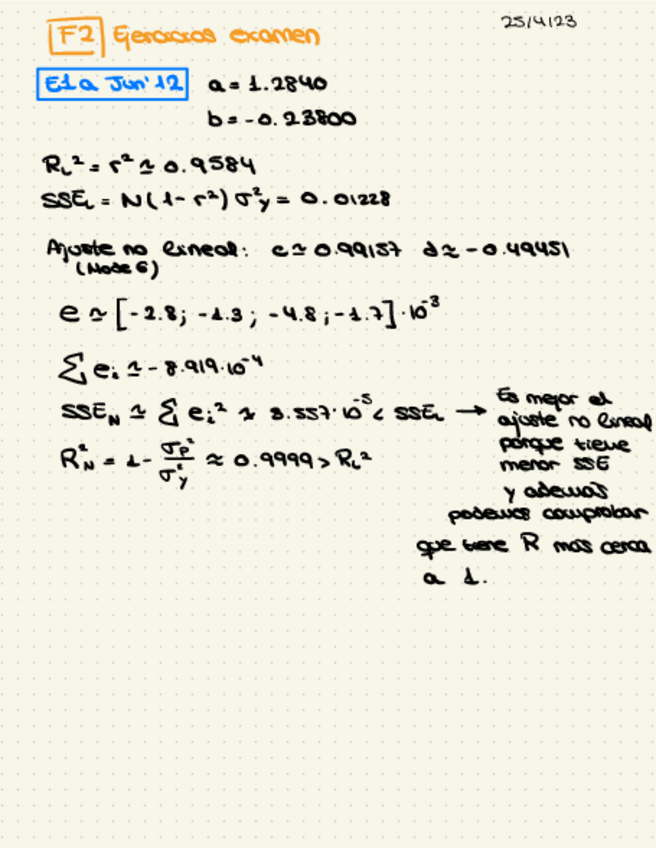 25/4/23
F2 Ejercicios examen
E1a Jun'12 a = 1.2840
b = -0.23800
R_L² = r² ≃ 0.9584
SSE_L = N(1-r²)σ²_y = 0.01228
Ajuste no lineal: c ≃ 0.99157 d ≃ -0.49451
(Mode 6)
e ≃ [-2.8; -1.3; -4.8; -1.7]·10⁻³
∑ e_i ≃ -8.919·10⁻⁴
SSE_N ≃ ∑ e_i² ≈ 3.557·10⁻⁵ < SSE_L →
R²_N = 1 - σ_p²/σ²_y ≈ 0.9999 > R_L²
Es mejor el
ajuste no lineal
porque tiene
menor SSE
y además
podemos comprobar
que tiene R más cerca
a 1.